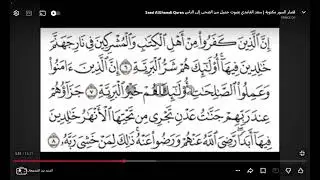 قصار السور مكتوبة | سعد الغامدي بصوت جميل من الضحى إلى الناس Saad Al Ghamdi Quran
إِنَّ ٱلَّذِينَ كَفَرُوا۟ مِنْ أَهْلِ ٱلْكِتَٰبِ وَٱلْمُشْرِكِينَ فِى نَارِ جَهَنَّمَ
خَٰلِدِينَ فِيهَآ أُو۟لَٰٓئِكَ هُمْ شَرُّ ٱلْبَرِيَّةِ ٦ إِنَّ ٱلَّذِينَ ءَامَنُوا۟
وَعَمِلُوا۟ ٱلصَّٰلِحَٰتِ أُو۟لَٰٓئِكَ هُمْ خَيْرُ ٱلْبَرِيَّةِ ٧ جَزَآؤُهُمْ
عِندَ رَبِّهِمْ جَنَّٰتُ عَدْنٍ تَجْرِى مِن تَحْتِهَا ٱلْأَنْهَٰرُ خَٰلِدِينَ
فِيهَآ أَبَدًا رَّضِىَ ٱللَّهُ عَنْهُمْ وَرَضُوا۟ عَنْهُ ذَٰلِكَ لِمَنْ خَشِىَ رَبَّهُۥ ٨